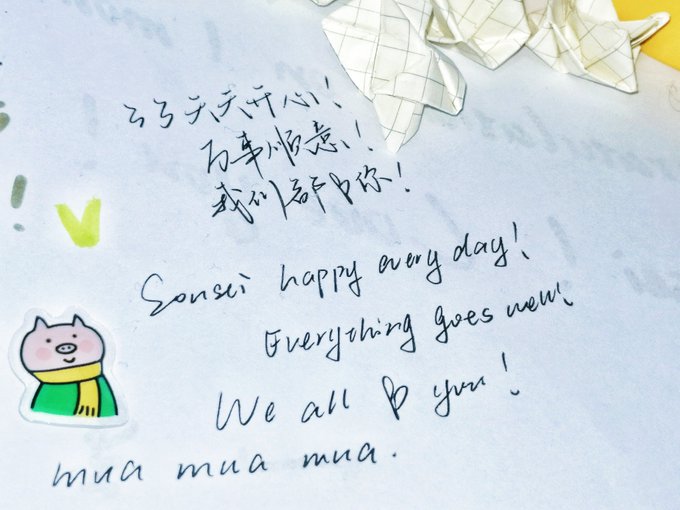 ろろ天天开心!
万事顺意!
我们都♡你!
Sensei happy every day!
Everything goes well!
We all ♡ you!
mua mua mua.